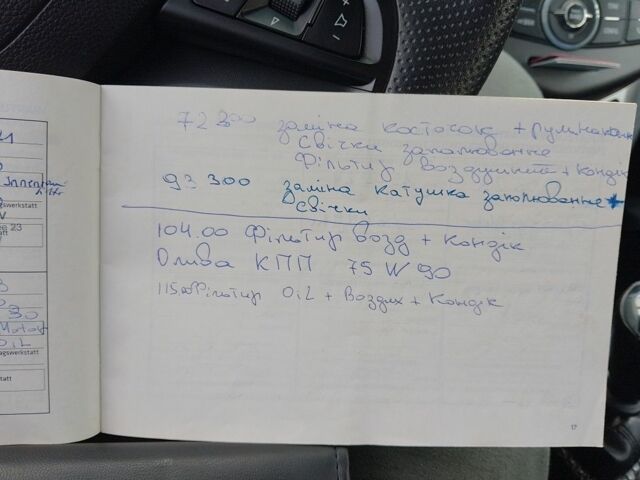 72 300 заміна косточок +
Свічки запалювання
Фільтир воздушний + конди
93 300 заміна катушка запалювання +
Свічки
104.00 Фільтир возд + кондік
Олива КПП 75 W 90
115.00 Фільтир OiL + Воздух + Кондік
17
gswerkstatt
23
tatt
30
Motor
OiL
agswerkstatt
tatt